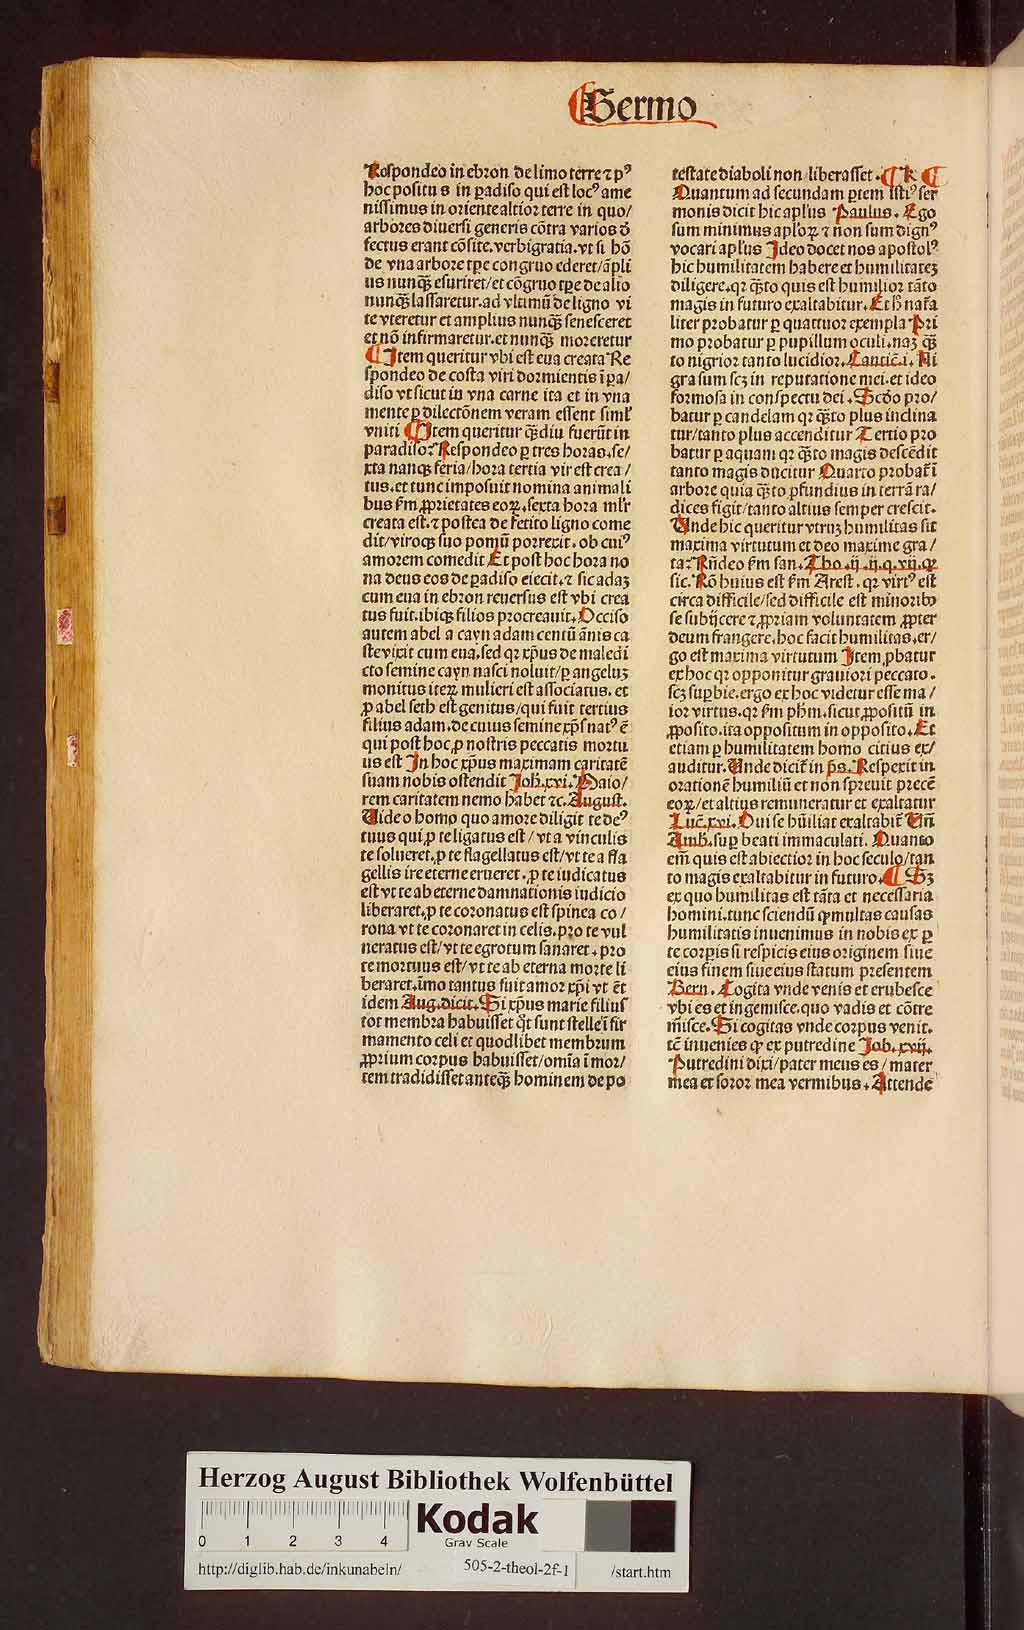 Sermo
Respondeo in ebron de limo terre ⁊ pꝰ
hoc positus in ꝑadiso qui est locꝰ ame
nissimus in oriente altior terre in quo/
arbores diuersi generis cōtra varios d̄
fectus erant cōsite. verbigratia. vt si hō
de vna arbore tꝑe congruo ederet/ āpli
us nunqȝ esuriret/ et cōgruo tꝑe de alio
nunqȝ lassaretur. ad vltimū de ligno vi
te vteretur et amplius nunqȝ senesceret
et nō infirmaretur. et nunqȝ moreretur
Item queritur vbi est eua creata Re
spondeo de costa viri dormientis ī ꝑa/
diso vt sicut in vna carne ita et in vna
mente ꝑ dilectōnem veram essent siml̓
vniti Item queritur qȝdiu fuerūt in
paradiso? Respondeo ꝑ tres horas. se/
xta nanqȝ feria/ hora tertia vir est crea/
tus. et tunc imposuit nomina animali
bus s̄m ꝓprietates eoꝝ. sexta hora ml̓r
creata est. ⁊ postea de fetito ligno come
dit/ viroqȝ suo pomū porrexit. ob cuiꝰ
amorem comedit Et post hoc hora no
na deus eos de ꝑadiso eiecit. ⁊ sic adaȝ
cum eua in ebron reuersus est vbi crea
tus fuit. ibiqȝ filios procreauit. Occiso
autem abel a cayn adam centū ānis ca
ste vixit cum eua. sed qꝛ xp̄us de maledi
cto semine cayn nasci noluit/ ꝑ angelum
monitus iteꝝ mulieri est associatus. et
ꝓ abel seth est genitus/ qui fuit tertius
filius adam. de cuius semine xp̄s natꝰ ē
qui post hoc ꝓ nostris peccatis mortu
us est In hoc xp̄us maximam caritatē
suam nobis ostendit Joh. xvi. Maio/
rem caritatem nemo habet ⁊c. August.
Vide o homo quo amore diligit te deꝰ
tuus qui ꝓ te ligatus est/ vt a vinculis
te solueret. ꝓ te flagellatus est/ vt te a fla
gellis ire eterne erueret. ꝓ te iudicatus
est vt te ab eterne damnationis iudicio
liberaret. ꝓ te coronatus est spinea co/
rona vt te coronaret in celis. pro te vul
neratus est/ vt te egrotum sanaret. pro
te mortuus est/ vt te ab eterna morte li
beraret. īmo tantus fuit amor xp̄i vt ēt
idem Aug. dicit. Si xp̄us marie filius
tot membra habuisset q̄t sunt stelle ī fir
mamento celi et quodlibet membrum
ꝓprium corpus habuisset/ omīa ī mor/
tem tradidisset anteqȝ hominem de po
testate diaboli non liberasset. K
Quantum ad secundam ꝑtem istiꝰ ser
monis dicit hic apl̓us Paulus. Ego
sum minimus apl̓oꝝ ⁊ non sum dignꝰ
vocari apl̓us Ideo docet nos apostolꝰ
hic humilitatem habere et humilitateȝ
diligere. qꝛ qȝto quis est humilior tāto
magis in futuro exaltabitur. Et h̄ natā
liter probatur ꝑ quattuor exempla Pri
mo probatur ꝑ pupillum oculi. naȝ qȝ
to nigrior tanto lucidior. Cantic̄. i. Ni
gra sum scȝ in reputatione mei. et ideo
formosa in conspectu dei. Scd̄o pro/
batur ꝑ candelam qꝛ qȝto plus inclina
tur/ tanto plus accenditur Tertio pro
batur ꝑ aquam qꝛ qȝto magis descēdit
tanto magis ducitur Quarto probat̄ ī
arbore quia qȝto ꝓfundius in terrā ra/
dices figit/ tanto altius semper crescit.
Unde hic queritur vtruȝ humilitas sit
maxima virtutum et deo maxime gra/
ta? Rn̄deo s̄m san. Tho. ij. ij. q. vij. qꝛ
sic. Rō huius est s̄m Arest. qꝛ virtꝰ est
circa difficile/ sed difficile est minoribꝰ
se subijcere ⁊ ꝓpriam voluntatem ꝓpter
deum frangere. hoc facit humilitas. er/
go est maxima virtutum Item ꝓbatur
ex hoc qꝛ opponitur grauiori peccato.
scȝ suꝑbie. ergo ex hoc videtur esse ma/
ior virtus. qꝛ s̄m ph̄m. sicut ꝓpositū in
ꝓposito. ita oppositum in opposito. Et
etiam ꝑ humilitatem homo citius ex/
auditur. Unde dicit̄ in ps. Respexit in
orationē humiliū et non spreuit precē
eoꝝ/ et altius remuneratur et exaltatur
Luc̄. xvi. Qui se hūiliat exaltabit̄ Vn̄
Amb. suꝑ beati immaculati. Quanto
em̄ quis est abiectior in hoc seculo/ tan
to magis exaltabitur in futuro. Sȝ
ex quo humilitas est tāta et necessaria
homini. tunc sciendū qꝙ multas causas
humilitatis inuenimus in nobis ex ꝑ
te corpis si respicis eius originem siue
eius finem siue eius statum presentem
Bern. Cogita vnde venis et erubesce
vbi es et ingemisce. quo vadis et cōtre
misce. Si cogitas vnde corpus venit.
tc̄ inuenies qꝙ ex putredine Job. xvij.
Putredini dixi/ pater meus es/ mater
mea et soror mea vermibus. Attende
Herzog August Bibliothek Wolfenbüttel
0 1 2 3 4
Kodak
Gray Scale
http://diglib.hab.de/inkunabeln/ 505-2-theol-2f-1 /start.htm